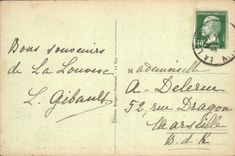 Bons souvenirs
de La Louvesc
L. Gibault
Mademoiselle
A - Deleruu
52, rue Dragon
Marseille
B. d. R.